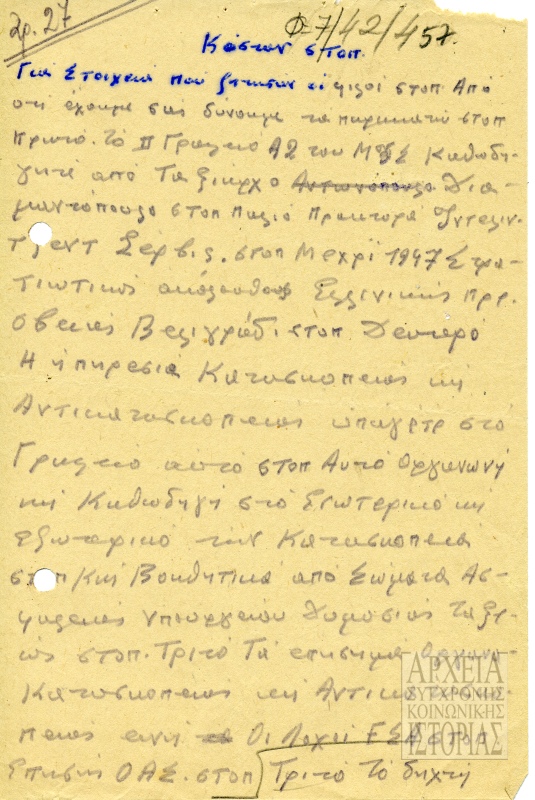 Αρ. 27
Φ 7/42/457.
Κώσταν στοπ.
Για Στοιχεια που ζιτησαν οι φιλοι στοπ Απο
οτι έχουμε σας δινουμε τα παρακατο στοπ
πρωτο. το ΙΙ Γραφειο Α2 του Καθωδη-
γιτε από Ταξιαρχο Αντωνοπουλο Δια-
μαντόπουλο στοπ Παλιο πρακτορα Ιντελιν-
τζεντ Σερβις. στοπ Μεχρι 1947 Στρα-
τιωτικος ακόλουθος Ελλινικης πρρ.
σβειας Βελιγράδι στοπ Δευτερο
Η ηπιρεσια Κατασκοπειας κη
Αντικατασκοπειας υπαγετε στο
Γραφειο αυτο στοπ Αυτο Οργανωνη
κη Καθωδηγη στο Εσωτερικο κη
εξωτερικο την Κατασκοπεια
στοπ Κη Βοηθητικα απο Σωματα Ασ-
φαλειας υπουργειου Δημοσιας Ταξε-
ως στοπ. Τριτο Τα επισημα Οργανα
Κατασκοπειας κη Αντικατασκο-
πειας εινε Οι Λοχοι ΕΣΑ στοπ
Επισης Ο ΑΣ. στοπ Τριτο Το διχτι
ΑΡΧΕΙΑ
ΣΥΓΧΡΟΝΗΣ
ΚΟΙΝΩΝΙΚΗΣ
ΙΣΤΟΡΙΑΣ